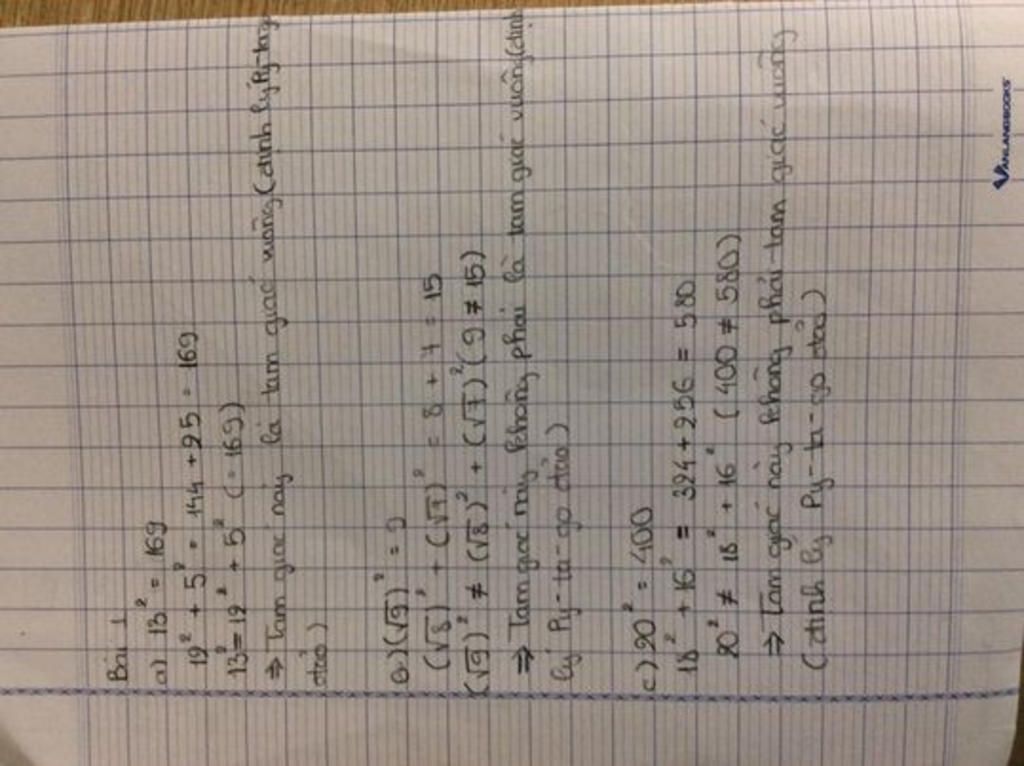 Bài 1
a) 13² = 169
12² + 5² = 144 + 25 = 169
13² = 12² + 5² (= 169)
⇒ Tam giác này là tam giác vuông (định lý Py-ta-go
đảo)
b) (√9)² = 9
(√8)² + (√7)² = 8 + 7 = 15
(√9)² ≠ (√8)² + (√7)² (9 ≠ 15)
⇒ Tam giác này không phải là tam giác vuông (định
lý Py-ta-go đảo)
c) 20² = 400
18² + 16² = 324 + 256 = 580
20² ≠ 18² + 16² (400 ≠ 580)
⇒ Tam giác này không phải tam giác vuông
(định lý Py-ta-go đảo)
VANLANGBOOKS